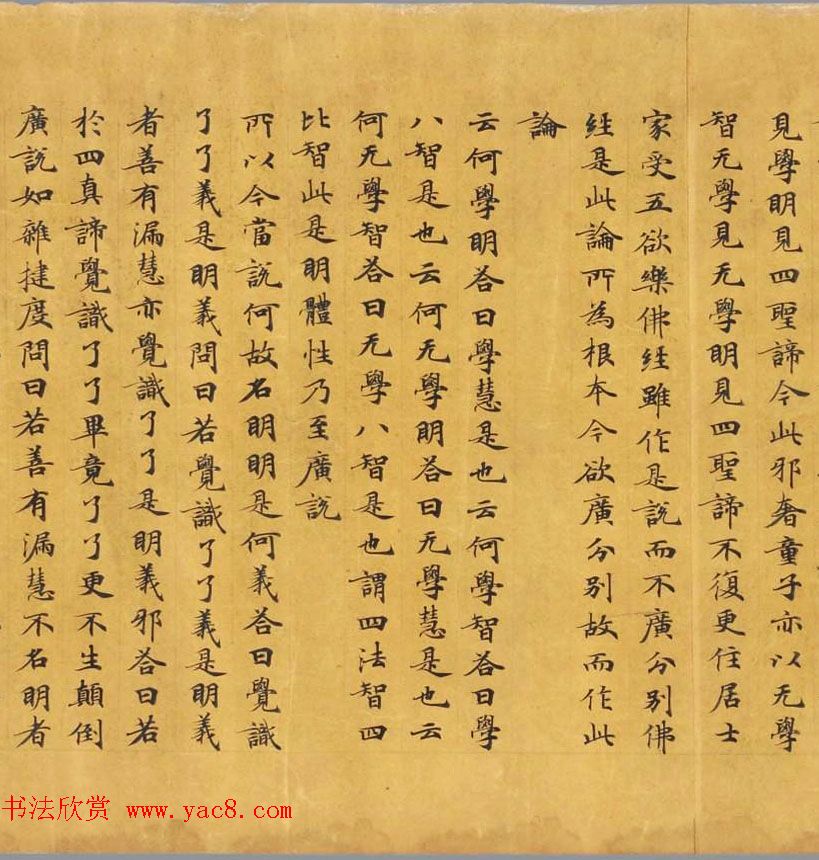 見學明見四聖諦今此邪奢童子亦以无學
智无學見无學明見四聖諦不復更住居士
家受五欲樂佛經雖作是說而不廣分別佛
經是此論所為根本今欲廣分別故而作此
論
云何學明荅曰學慧是也云何學智荅曰學
八智是也云何无學明荅曰无學慧是也云
何无學智荅曰无學八智是也謂四法智四
比智此是明體性乃至廣說
所以今當說何故名明明是何義荅曰覺識
了了義是明義問曰若覺識了了義是明義
者善有漏慧亦覺識了了是明義邪荅曰若
於四真諦覺識了了畢竟了了更不生顛倒
廣說如雜揵度問曰若善有漏慧不名明者
书法欣赏 www.yac8.com